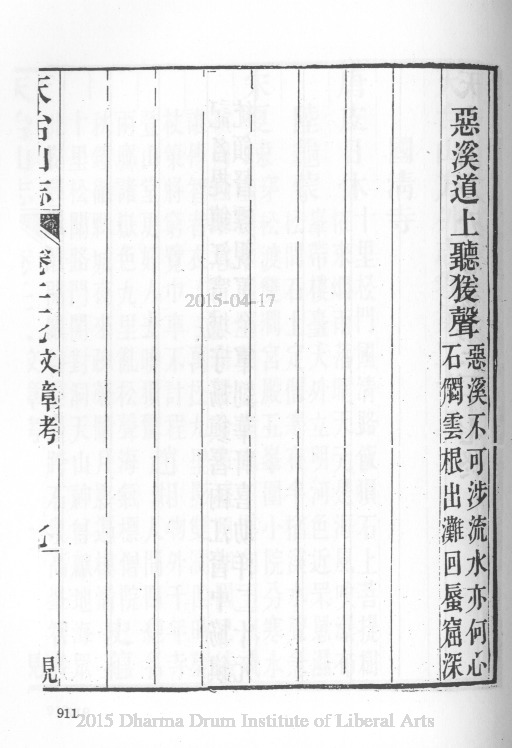 惡溪道上聽猨聲
惡溪不可涉流水亦何心
石觸雲根出灘回蜃窟深
天台山志
文章考
2015-04-17
911
2015 Dharma Drum Institute of Liberal Arts